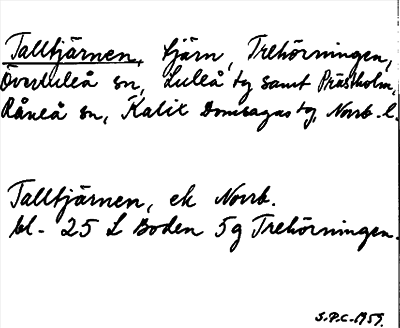 Talltjärnen, tjärn, Trehörningen,
Överluleå sn, Luleå tg samt Prästholm,
Råneå sn, Kalix Domsagas tg, Norrb. l.
Talltjärnen, ek Norrb.
bl. 25 L Boden 5g Trehörningen.
S.P.C. 1959.